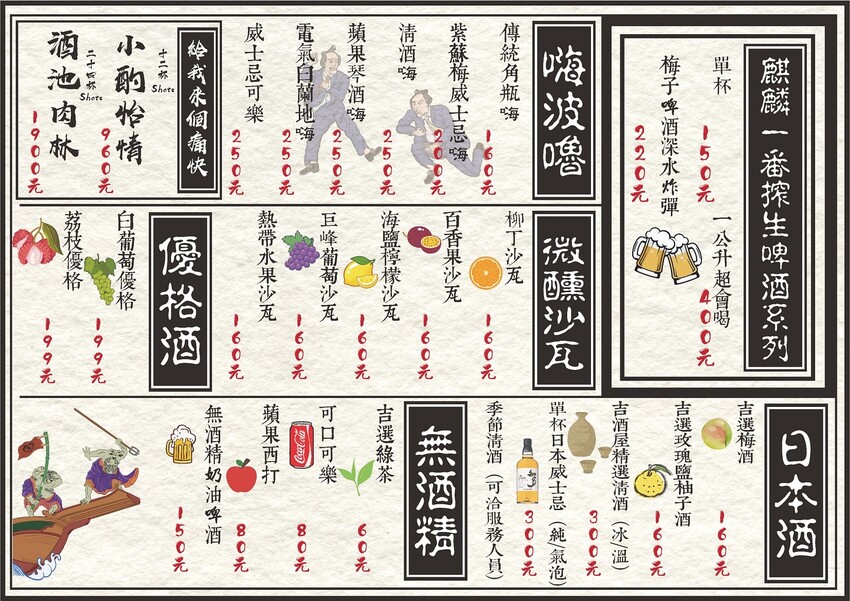 麒麟一番搾生啤酒系列
單杯
150元
一公升超會喝
400元
梅子啤酒深水炸彈
220元
嗨波嚕
傳統角瓶嗨
160元
紫蘇梅威士忌嗨
200元
清酒嗨
250元
蘋果琴酒嗨
250元
電氣白蘭地嗨
250元
威士忌可樂
250元
給我來個痛快
十二杯 Shots
小酌怡情
960元
二十四杯 Shots
酒池肉林
1900元
微醺沙瓦
柳丁沙瓦
160元
百香果沙瓦
160元
海鹽檸檬沙瓦
160元
巨峰葡萄沙瓦
160元
熱帶水果沙瓦
160元
優格酒
白葡萄優格
199元
荔枝優格
199元
日本酒
吉選梅酒
160元
吉選玫瑰鹽柚子酒
160元
吉酒屋精選清酒(冰/溫)
300元
單杯日本威士忌(純/氣泡)
300元
季節清酒(可洽服務人員)
無酒精
吉選綠茶
60元
可口可樂
Coca-Cola
80元
蘋果西打
80元
無酒精奶油啤酒
150元